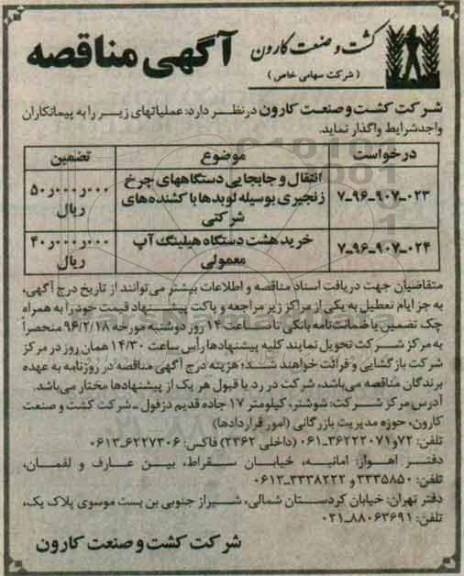 کشت و صنعت کارون
(شرکت سهامی خاص)
آگهی مناقصه
شرکت کشت و صنعت کارون در نظر دارد: عملیاتهای زیر را به پیمانکاران
واجدشرایط واگذار نماید.
درخواست موضوع تضمین
۷-۹۶-۹۰۷-۰۲۳ انتقال و جابجایی دستگاههای چرخ زنجیری بوسیله لوبدها با کشنده‌های شرکتی ۵۰ر۰۰۰ر۰۰۰ ریال
۷-۹۶-۹۰۷-۰۲۴ خرید هشت دستگاه هیلینگ آپ معمولی ۴۰ر۰۰۰ر۰۰۰ ریال
متقاضیان جهت دریافت اسناد مناقصه و اطلاعات بیشتر می‌توانند از تاریخ درج آگهی،
به جز ایام تعطیل به یکی از مراکز زیر مراجعه و پاکت پیشنهاد قیمت خود را به همراه
چک تضمین یا ضمانت‌نامه بانکی تا ساعت ۱۴ روز دوشنبه مورخه ۹۶/۲/۱۸ منحصراً
به مرکز شرکت تحویل نمایند کلیه پیشنهادها رأس ساعت ۱۴/۳۰ همان روز در مرکز
شرکت بازگشایی و قرائت خواهند شد؛ هزینه درج آگهی مناقصه در روزنامه به عهده
برندگان مناقصه می‌باشد، شرکت در رد یا قبول هر یک از پیشنهادها مختار می‌باشد.
آدرس: مرکز شرکت: شوشتر، کیلومتر ۱۷ جاده قدیم دزفول - شرکت کشت و صنعت
کارون، حوزه مدیریت بازرگانی (امور قراردادها)
تلفن: ۷۲و۰۶۱-۳۶۲۲۲۰۷۱ (داخلی ۲۳۶۲) فاکس: ۰۶۱۳-۶۲۲۷۳۰۶
دفتر اهواز: امانیه، خیابان سقراط، بین عارف و لقمان،
تلفن: ۳۳۳۵۸۵۰ و ۰۶۱۳-۳۳۳۸۲۲۲
دفتر تهران: خیابان کردستان شمالی، شیراز جنوبی بن بست موسوی پلاک یک،
تلفن: ۰۲۱-۸۸۰۶۳۶۹۱
شرکت کشت و صنعت کارون